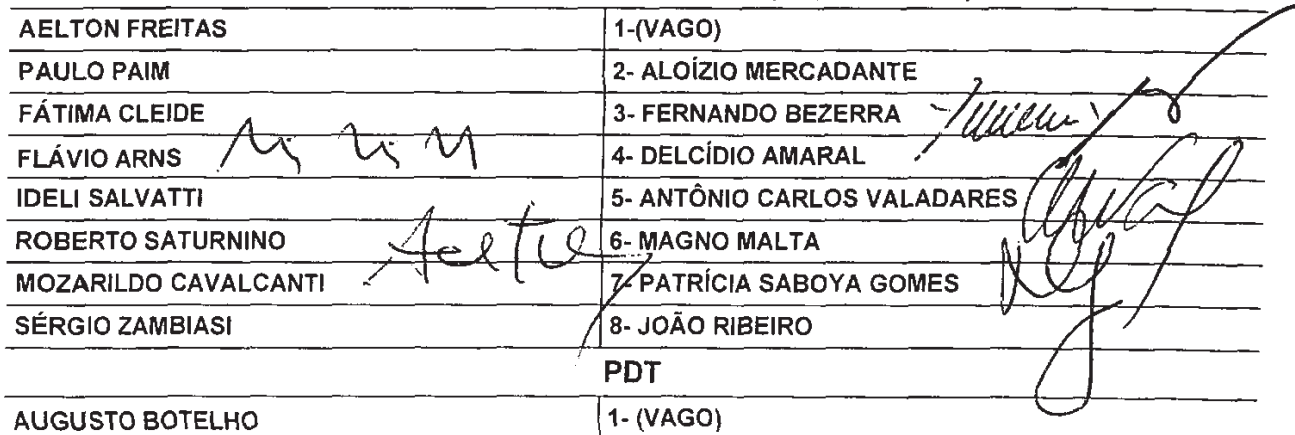 AELTON FREITAS 1-(VAGO)
PAULO PAIM 2- ALOÍZIO MERCADANTE
FÁTIMA CLEIDE 3- FERNANDO BEZERRA
FLÁVIO ARNS 4- DELCÍDIO AMARAL
IDELI SALVATTI 5- ANTÔNIO CARLOS VALADARES
ROBERTO SATURNINO 6- MAGNO MALTA
MOZARILDO CAVALCANTI 7- PATRÍCIA SABOYA GOMES
SÉRGIO ZAMBIASI 8- JOÃO RIBEIRO
PDT
AUGUSTO BOTELHO 1- (VAGO)